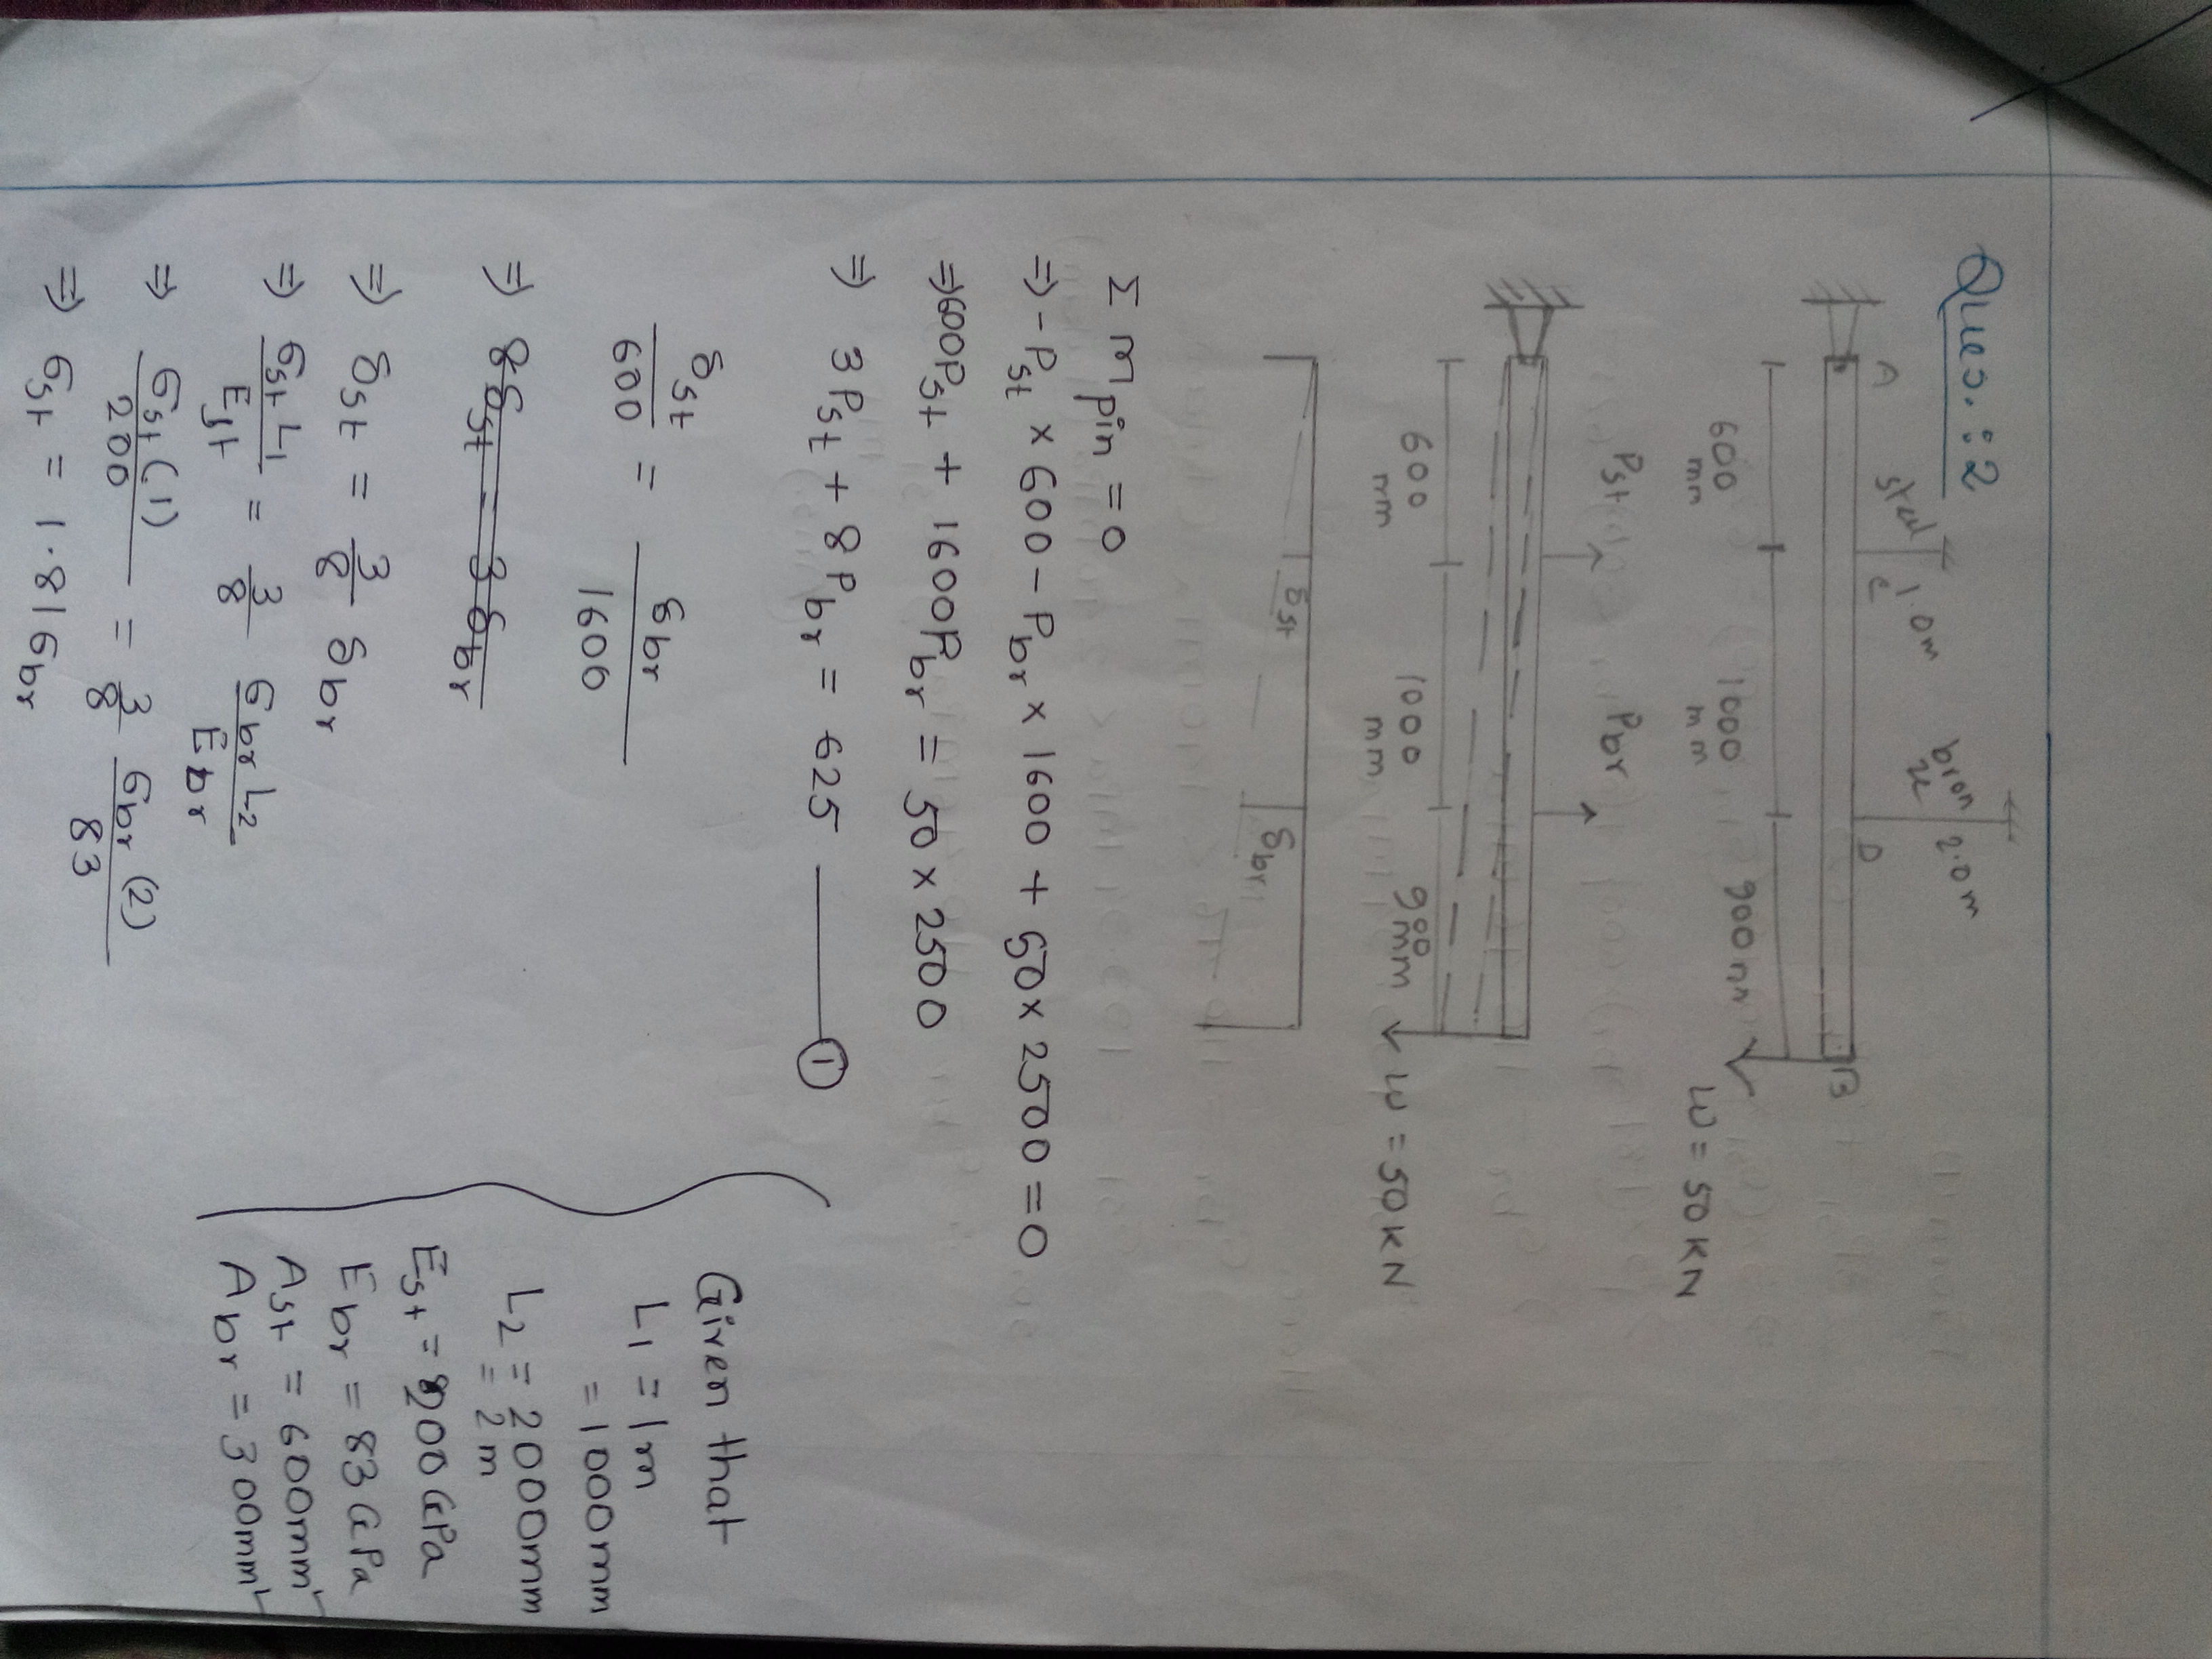 Ques.:2
A
steel
1.0m
C
bron
ze
2.0m
D
B
600
mm
1000
mm
900mm
W = 50 KN
Pst
Pbr
600
mm
1000
mm
900
mm
W = 50 KN
δst
δbr
Σ M pin = 0
⇒ - Pst × 600 - Pbr × 1600 + 50 × 2500 = 0
⇒ 600Pst + 1600Pbr = 50 × 2500
⇒ 3Pst + 8Pbr = 625 ——— ①
δst/600 = δbr/1600
⇒ 8δst = 3δbr
⇒ δst = 3/8 δbr
⇒ σst L1/Est = 3/8 σbr L2/Ebr
⇒ σst (1)/200 = 3/8 σbr (2)/83
⇒ σst = 1.81σbr
Given that
L1 = 1m
= 1000mm
L2 = 2000mm
= 2m
Est = 200GPa
Ebr = 83 GPa
Ast = 600mm²
Abr = 300mm²